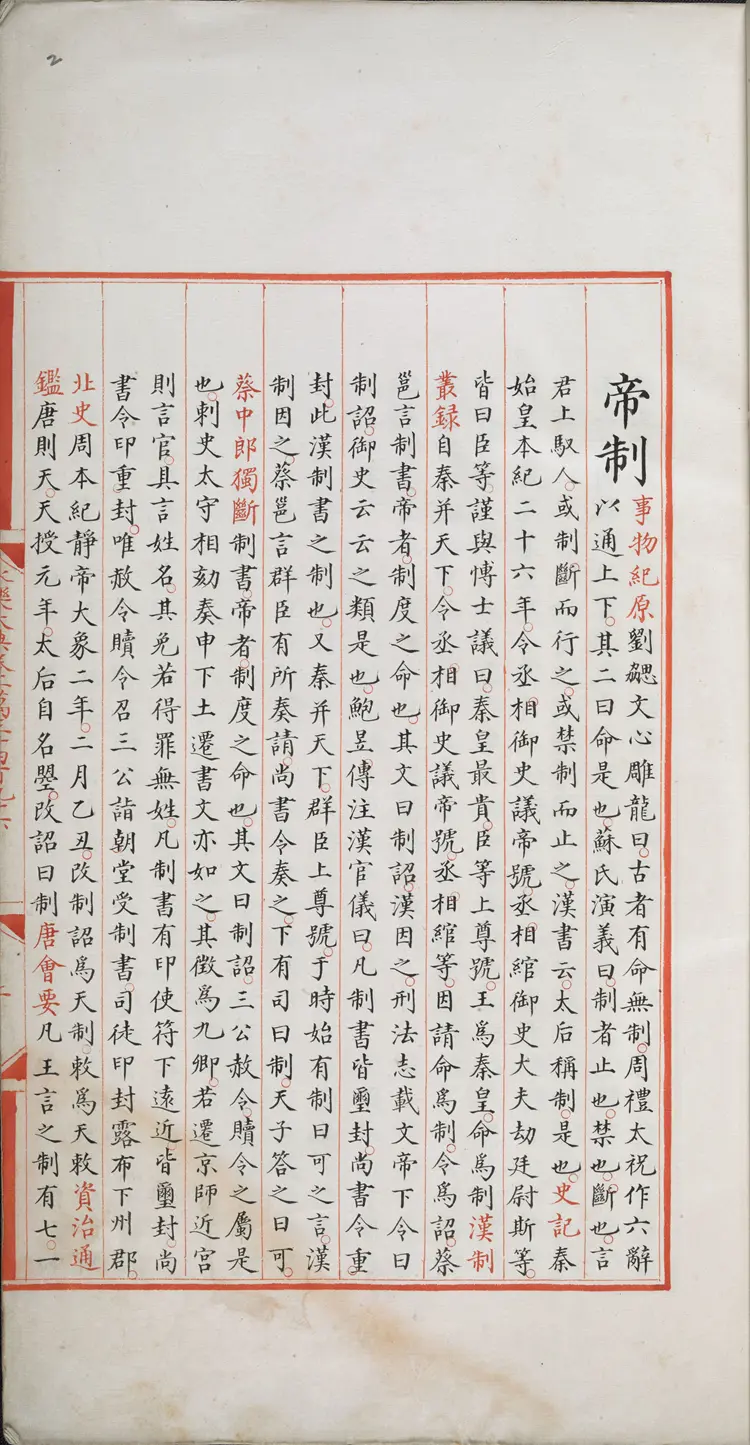 2
帝制
事物紀原劉勰文心雕龍曰古者有命無制周禮太祝作六辭
以通上下其二曰命是也蘇氏演義曰制者止也禁也斷也言
君上馭人或制斷而行之或禁制而止之漢書云太后稱制是也史記秦
始皇本紀二十六年令丞相御史議帝號丞相綰御史大夫劫廷尉斯等
皆曰臣等謹與博士議曰秦皇最貴臣等上尊號王為秦皇命為制漢制
叢録自秦并天下令丞相御史議帝號丞相綰等因請命為制令為詔蔡
邕言制書帝者制度之命也其文曰制詔漢因之刑法志載文帝下令曰
制詔御史云云之類是也鮑昱傳注漢官儀曰凡制書皆璽封尚書令重
封此漢制書之制也又秦并天下群臣上尊號于時始有制曰可之言漢
制因之蔡邕言群臣有所奏請尚書令奏之下有司曰制天子答之曰可
蔡中郎獨斷制書帝者制度之命也其文曰制詔三公赦令贖令之屬是
也刺史太守相劾奏申下土遷書文亦如之其徵為九卿若遷京師近宮
則言官具言姓名其免若得罪無姓凡制書有印使符下遠近皆璽封尚
書令印重封唯赦令贖令召三公詣朝堂受制書司徒印封露布下州郡
北史周本紀靜帝大象二年二月乙丑改制詔為天制敕為天敕資治通
鑑唐則天天授元年太后自名曌改詔曰制唐會要凡王言之制有七一